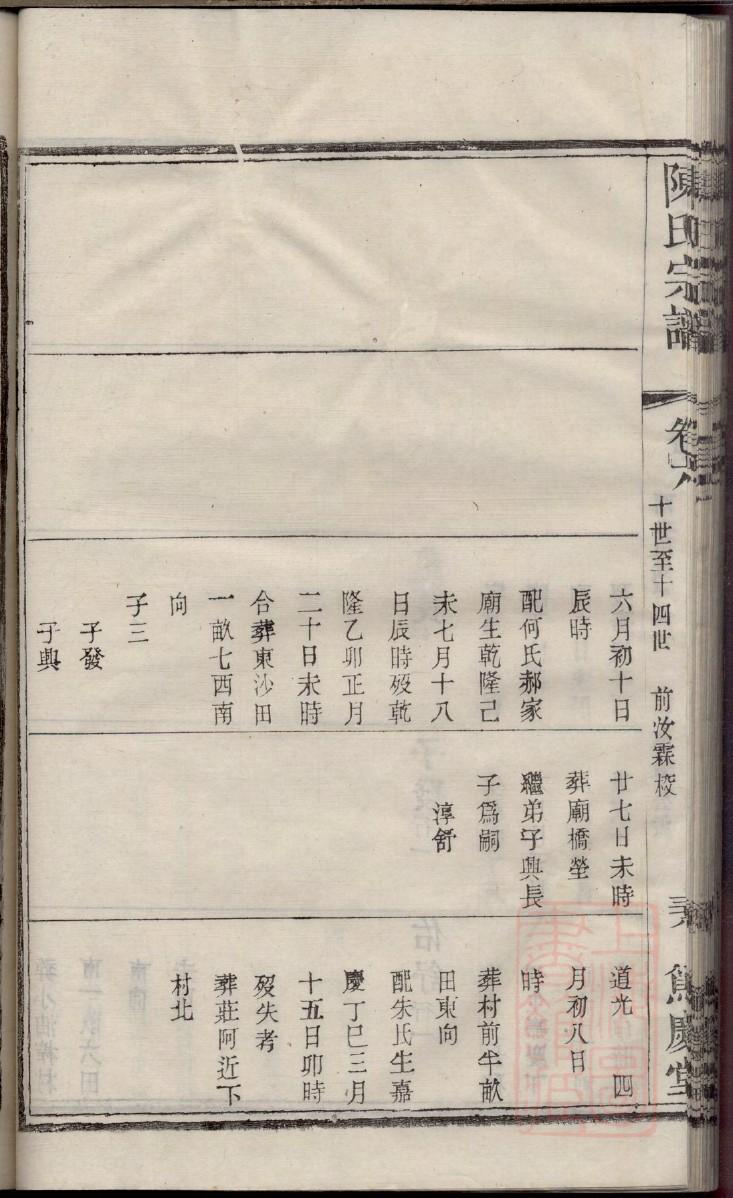 陳氏宗譜
卷六
十世至十四世
前汝霖校
篤慶堂
六月初十日
辰時
配何氏郝家
廟生乾隆己
未七月十八
日辰時歿乾
隆乙卯正月
二十日未時
合葬東沙田
一畝七西南
向
子三
子發
子興
廿七日未時
葬廟橋塋
繼弟子興長
子爲嗣
淳舒
道光 四
月初八日
時
葬村前半畝
田東向
配朱氏生嘉
慶丁巳三月
十五日卯時
歿失考
葬莊阿近下
村北